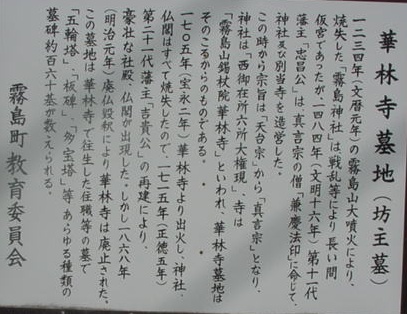 華林寺墓地(坊主墓)
一二三四年(文暦元年)の霧島山大噴火により、
焼失した「霧島神社」は戦乱等により長い間
仮宮であったが一四八四年(文明十六年)第十一代
藩主「忠昌公」は真言宗の僧「兼慶法印」に命じて、
神社及び別当寺を造営した。
この時から宗旨は「天台宗」から「真言宗」となり、
神社は「西御在所六所大権現」、寺は
「霧島山錫杖院華林寺」といわれ、華林寺墓地は
そのころからのものである。
一七〇五年(宝永二年)華林寺より出火し、神社、
仏閣はすべて焼失したので、一七一五年(正徳五年)
第二十一代藩主「吉貴公」の再建により、
豪壮な社殿、仏閣が出現した。しかし一八六八年
(明治元年)廃仏毀釈により華林寺は廃止された。
この墓地は華林寺で往生した住職等の墓で
「五輪塔」、「板碑」、「多宝塔」等あらゆる種類の
墓碑約百六十基が数えられる。
霧島町教育委員会